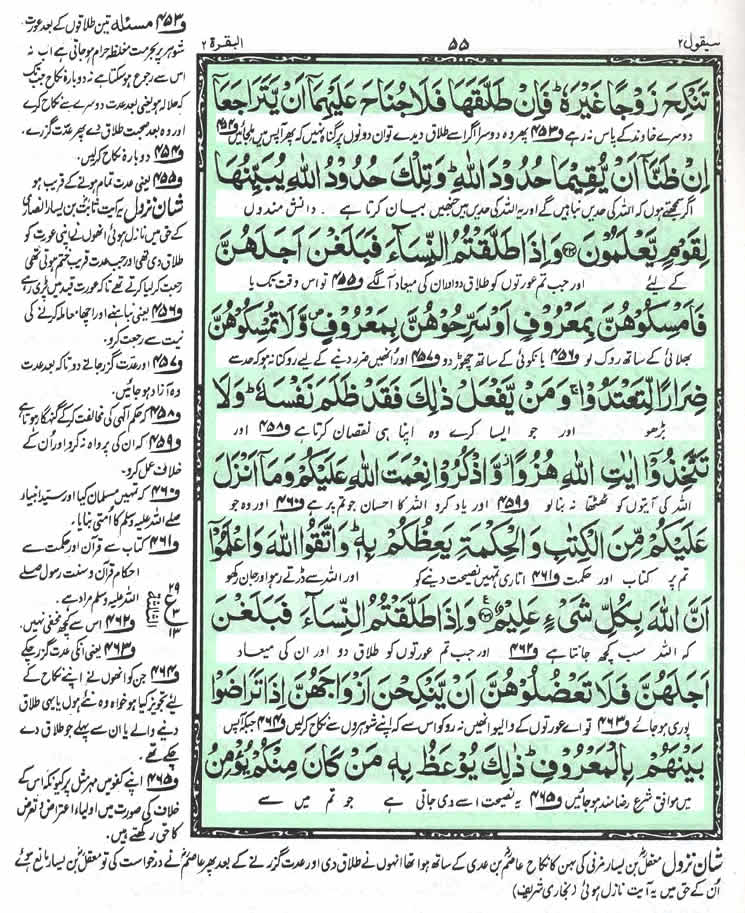 سیقول ۲
۵۵
البقرۃ ۲
تَنْكِحَ زَوْجًا غَيْرَهٗ ؕ فَاِنْ طَلَّقَهَا فَلَا جُنَاحَ عَلَيْهِمَاۤ اَنْ يَّتَرَاجَعَاۤ
دوسرے خاوند کے پاس نہ رہے ف۴۵۳ پھر وہ دوسرا اگر اسے طلاق دیدے تو ان دونوں پر گناہ نہیں کہ پھر آپس میں مل جائیں ف۴۵۴
اِنْ ظَنَّاۤ اَنْ يُّقِيْمَا حُدُوْدَ اللّٰهِ ؕ وَتِلْكَ حُدُوْدُ اللّٰهِ يُبَيِّنُهَا
اگر سمجھتے ہوں کہ اللہ کی حدیں نباہیں گے اور یہ اللہ کی حدیں ہیں جنھیں بیان کرتا ہے دانش مندوں
لِقَوْمٍ يَّعْلَمُوْنَ ۝ وَاِذَا طَلَّقْتُمُ النِّسَآءَ فَبَلَغْنَ اَجَلَهُنَّ
کے لیئے اور جب تم عورتوں کو طلاق دو اور ان کی میعاد آ لگے ف۴۵۵ تو اس وقت تک یا
فَاَمْسِكُوْهُنَّ بِمَعْرُوْفٍ اَوْ سَرِّحُوْهُنَّ بِمَعْرُوْفٍ وَّلَا تُمْسِكُوْهُنَّ
بھلائی کے ساتھ روک لو ف۴۵۶ یا نکوئی کے ساتھ چھوڑ دو ف۴۵۷ اور انھیں ضرر دینے کے لیے روکنا نہ ہو کہ حد سے
ضِرَارًا لِّتَعْتَدُوْا ۚ وَمَنْ يَّفْعَلْ ذٰلِكَ فَقَدْ ظَلَمَ نَفْسَهٗ ؕ وَلَا
بڑھو اور جو ایسا کرے وہ اپنا ہی نقصان کرتا ہے ف۴۵۸ اور
تَتَّخِذُوْۤا اٰيٰتِ اللّٰهِ هُزُوًا وَّاذْكُرُوْا نِعْمَتَ اللّٰهِ عَلَيْكُمْ وَمَاۤ اَنْزَلَ
اللہ کی آیتوں کو ٹھٹھا نہ بنا لو ف۴۵۹ اور یاد کرو اللہ کا احسان جو تم پر ہے ف۴۶۰ اور وہ جو
عَلَيْكُمْ مِّنَ الْكِتٰبِ وَالْحِكْمَةِ يَعِظُكُمْ بِهٖ ؕ وَاتَّقُوا اللّٰهَ وَاعْلَمُوْۤا
تم پر کتاب اور حکمت ف۴۶۱ اتاری تمہیں نصیحت دینے کو اور اللہ سے ڈرتے رہو اور جان رکھو
اَنَّ اللّٰهَ بِكُلِّ شَيْءٍ عَلِيْمٌ ۝ وَاِذَا طَلَّقْتُمُ النِّسَآءَ فَبَلَغْنَ
کہ اللہ سب کچھ جانتا ہے ف۴۶۲ اور جب تم عورتوں کو طلاق دو اور ان کی میعاد
اَجَلَهُنَّ فَلَا تَعْضُلُوْهُنَّ اَنْ يَّنْكِحْنَ اَزْوَاجَهُنَّ اِذَا تَرَاضَوْا
پوری ہو جائے ف۴۶۳ تو اے عورتوں کے والیو انھیں نہ روکو اس سے کہ اپنے شوہروں سے نکاح کرلیں ف۴۶۴ جبکہ آپس
بَيْنَهُمْ بِالْمَعْرُوْفِ ؕ ذٰلِكَ يُوْعَظُ بِهٖ مَنْ كَانَ مِنْكُمْ يُؤْمِنُ
میں موافق شرع رضامند ہو جائیں ف۴۶۵ یہ نصیحت اسے دی جاتی ہے جو تم میں سے
ف۴۵۳ مسئلہ تین طلاقوں کے بعد عورت
شوہر پر بحرمت مغلظہ حرام ہوجاتی ہے اب نہ
اس سے رجوع ہوسکتا ہے نہ دوبارہ نکاح جبتک
کہ حلالہ ہو یعنی بعد عدت دوسرے سے نکاح کرے
اور وہ بعد صحبت طلاق دے پھر عدت گزرے۔
ف۴۵۴ دوبارہ نکاح کرلیں۔
ف۴۵۵ یعنی عدت تمام ہونے کے قریب ہو
شان نزول یہ آیت ثابت بن یسار انصاری
کے حق میں نازل ہوئی انھوں نے اپنی عورت کو
طلاق دی تھی اور جب عدت قریب ختم ہوتی تھی
رجعت کرلیا کرتے تھے تاکہ عورت قید میں پڑی رہے
ف۴۵۶ یعنی نباہنے اور اچھا معاملہ کرنے کی
نیت سے رجعت کرو۔
ف۴۵۷ اور عدت گزر جانے دو تاکہ بعد عدت
وہ آزاد ہوجائیں۔
ف۴۵۸ کہ حکم الٰہی کی مخالفت کرکے گنہگار ہوتا ہے
ف۴۵۹ کہ ان کی پرواہ نہ کرو اور اُن کے
خلاف عمل کرو۔
ف۴۶۰ کہ تمہیں مسلمان کیا اور سید انبیاء
صلے اللہ علیہ وسلم کا اُمتی بنایا۔
ف۴۶۱ کتاب سے قرآن اور حکمت سے
احکام قرآن و سنت رسول صلے
اللہ علیہ وسلم مراد ہے۔
۲۹
ع
۳
۱۳
ف۴۶۲ اس سے کچھ مخفی نہیں۔
ف۴۶۳ یعنی انکی عدت گزر چکے
ف۴۶۴ جن کو انھوں نے اپنے نکاح کے
لئے تجویز کیا ہو خواہ وہ نئے ہوں یا یہی طلاق
دینے والے یا ان سے پہلے جو طلاق دے
چکے تھے۔
ف۴۶۵ اپنے کفو میں مہر مثل پر کیونکہ اس کے
خلاف کی صورت میں اولیاء اعتراض و تعرض
کا حق رکھتے ہیں۔
شان نزول معقل بن یسار مزنی کی بہن کا نکاح عاصم بن عدی کے ساتھ ہوا تھا انہوں نے طلاق دی اور عدت گزرنے کے بعد پھر عاصم نے درخواست کی تو معقل بن یسار مانع ہوئے
اُن کے حق میں یہ آیت نازل ہوئی (بخاری شریف)